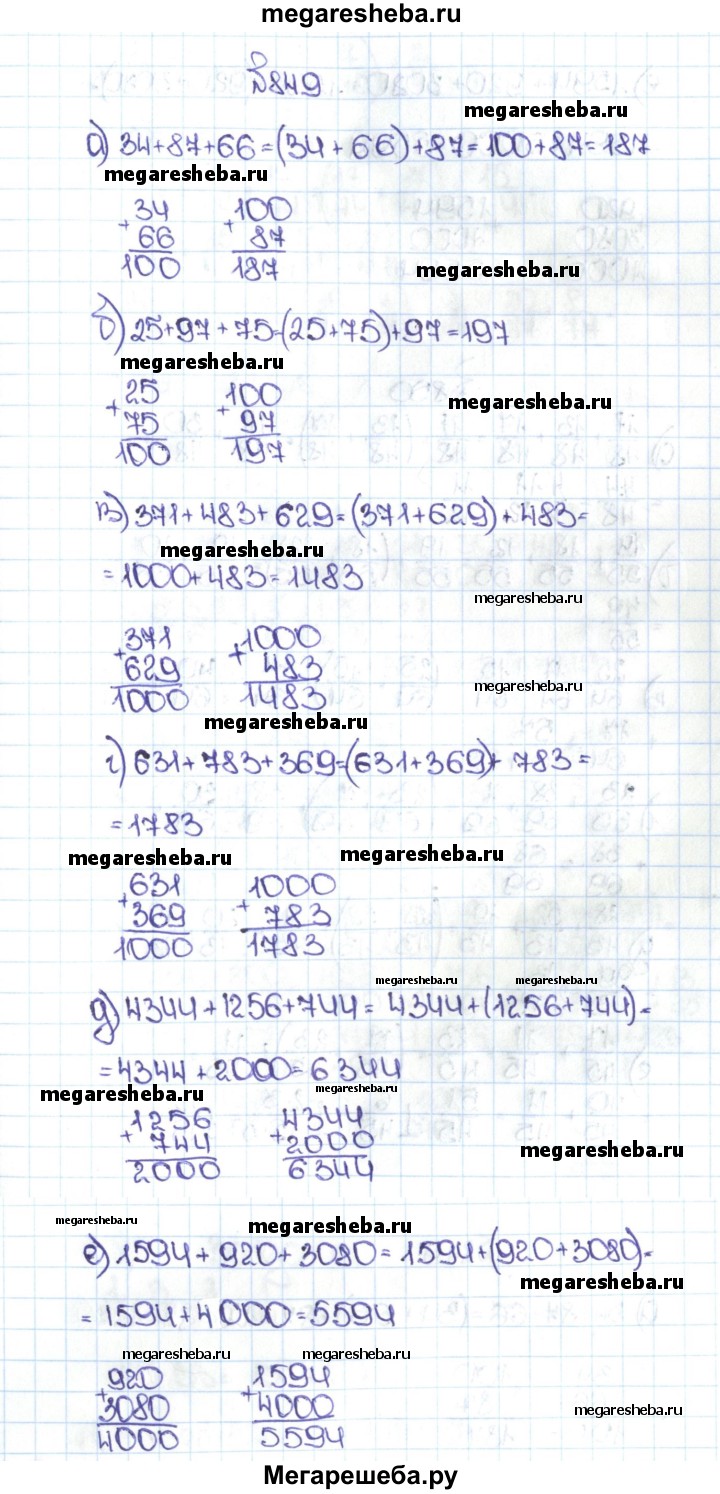 megaresheba.ru
№849
megaresheba.ru
а) 34+87+66=(34+66)+87=100+87=187
megaresheba.ru
34 100
+ +
66 87
100 187
megaresheba.ru
б) 25+97+75=(25+75)+97=197
megaresheba.ru
25 100
+ +
75 97
100 197
megaresheba.ru
в) 371+483+629=(371+629)+483=
megaresheba.ru
=1000+483=1483
megaresheba.ru
371 1000
+ +
629 483
1000 1483
megaresheba.ru
megaresheba.ru
г) 631+783+369=(631+369)+783=
=1783
megaresheba.ru megaresheba.ru
631 1000
+ +
369 783
1000 1783
megaresheba.ru megaresheba.ru
д) 4344+1256+744=4344+(1256+744)=
=4344+2000=6344
megaresheba.ru megaresheba.ru
1256 4344
+ +
744 2000
2000 6344
megaresheba.ru
megaresheba.ru megaresheba.ru
е) 1594+920+3080=1594+(920+3080)=
megaresheba.ru
=1594+4000=5594
megaresheba.ru megaresheba.ru
920 1594
+ +
3080 4000
4000 5594
megaresheba.ru
Мегарешеба.ру